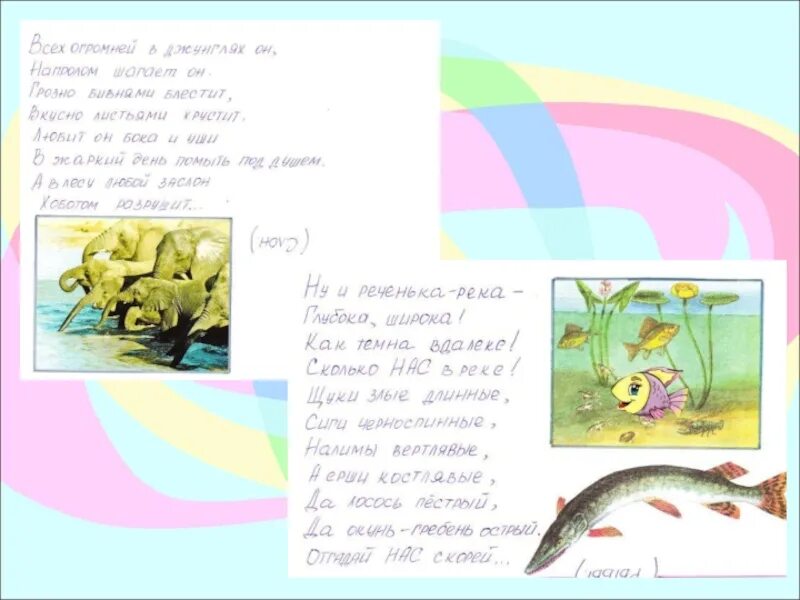 Всех огромней в джунглях он,
Напролом шагает он.
Грозно бивнями блестит,
Вкусно листьями хрустит.
Любит он бока и уши
В жаркий день помыть под душем.
А в лесу любой заслон
Хоботом разрушит...
(Слон)
Ну и реченька-река -
Глубока, широка!
Как темна вдалеке!
Сколько НАС в реке!
Щуки злые длинные,
Сиги черноспинные,
Налимы вертлявые,
А ерши костлявые,
Да лосось пёстрый,
Да окунь-гребень острый.
Отгадай НАС скорей...
(рыбы)